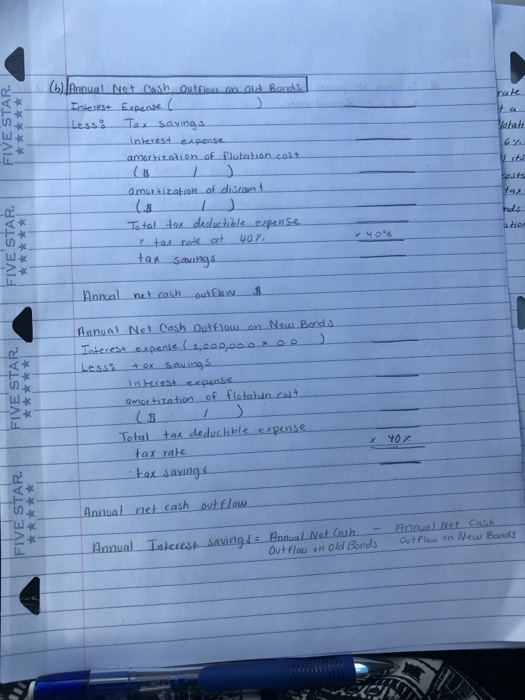 (b) Annual Net Cash Outflow on Old Bonds
Interest Expense ( )
Less: Tax savings
interest expense
amortization of flotation cost
($ / )
amortization of discount
($ / )
Total tax deductible expense
x tax rate at 40%. x 40%
tax savings
Annual net cash outflow $
Annual Net Cash Outflow on New Bonds
Interest expense (2,000,000 x 0.0 )
Less: tax savings
interest expense
amortization of flotation cost
($ / )
Total tax deductible expense
tax rate x 40%
tax savings
Annual net cash outflow
Annual Interest savings = Annual Net Cash Outflow on old Bonds - Annual Net Cash Outflow on New Bonds
FIVE STAR.
FIVE STAR.
FIVE STAR.
FIVE STAR.
rate
6%
costs
tax